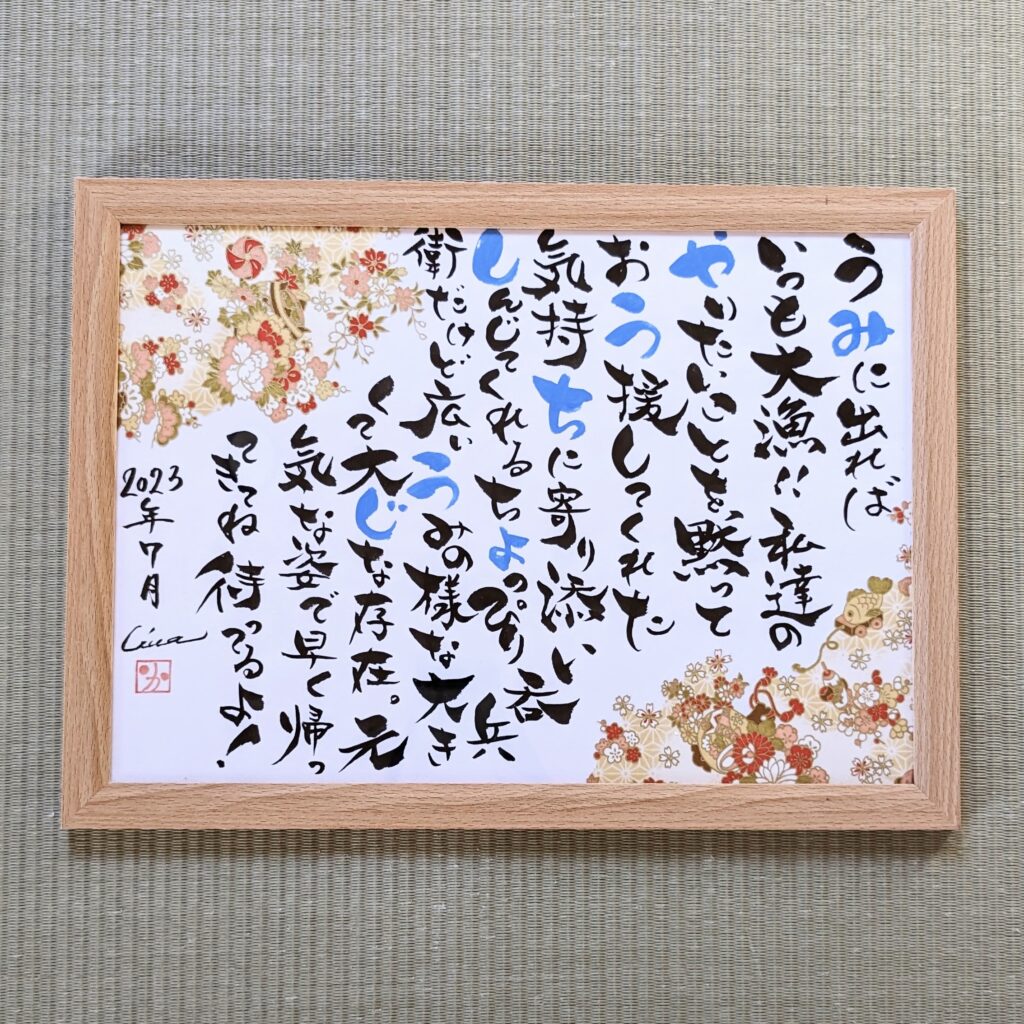 うみに出れば
いつも大漁!!私達の
やりたいことを、黙って
おう援してくれた
気持ちに寄り添い
しんじてくれるちょっぴり呑兵
衛だけど広いうみの様な大き
くて大じな存在。元
気な姿で早く帰っ
てきてね 待ってるよ!
2023年7月